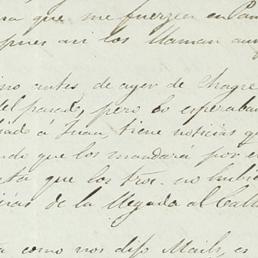 que me fuerzen en Pan
pues asi los llaman aun
antes de ayer de Chagre
del pasado, pero lo esperaban
á Juan, tiene noticias q
que los mandará por e
que los tros. no hubi
de la llegada al Calla
como nos dijo Mail, es